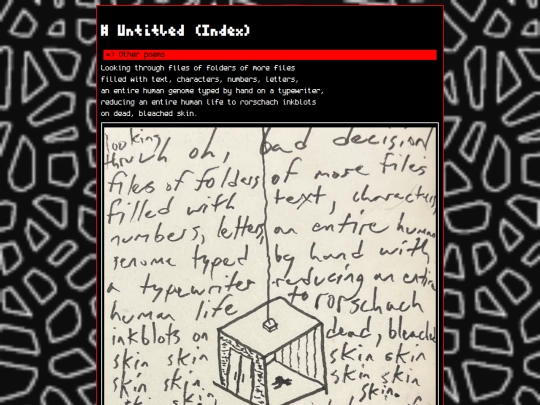 # Untitled (Index)
=> Other poems
Looking through files of folders of more files
filled with text, characters, numbers, letters,
an entire human genome typed by hand on a typewriter,
reducing an entire human life to rorschach inkblots
on dead, bleached skin.
looking
through oh, bad decision
files of folders of more files
filled with text, characters,
numbers, letters, an entire human
genome typed by hand with
a typewriter reducing an entire
human life to rorschach
inkblots on dead, bleached
skin skin skin skin
skin skin skin skin
skin skin, skin.